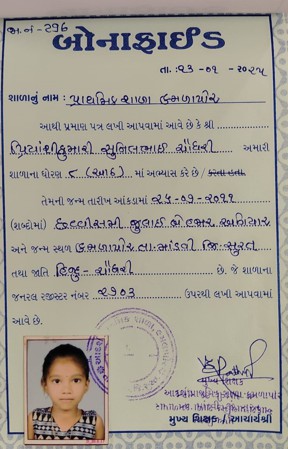 જા.નં-296
બોનાફાઈડ
તા. : ૨૩ - ૦૧ - ૨૦૨૫
શાળાનું નામ : પ્રાથમિક શાળા કમળાપોર
આથી પ્રમાણ પત્ર લખી આપવામાં આવે છે કે શ્રી
પ્રિયાંશીકુમારી સુનિલભાઈ ચૌધરી અમારી
શાળાના ધોરણ ૮ (આઠ) માં અભ્યાસ કરે છે / કરતા હતા.
તેમની જન્મ તારીખ આંકડામાં ૨૬-૦૭-૨૦૧૧
(શબ્દોમાં) છવ્વીસમી જુલાઈ બે હજાર અગિયાર
અને જન્મ સ્થળ કમળાપોર તા. માંડવી જિ-સુરત
તથા જાતિ હિન્દુ-ચૌધરી છે. જે શાળાના
જનરલ રજીસ્ટર નંબર ૨૧૦૩ ઉપરથી લખી આપવામાં
આવે છે.
મુખ્ય શિક્ષક
મુખ્ય શિક્ષક / આચાર્યશ્રી